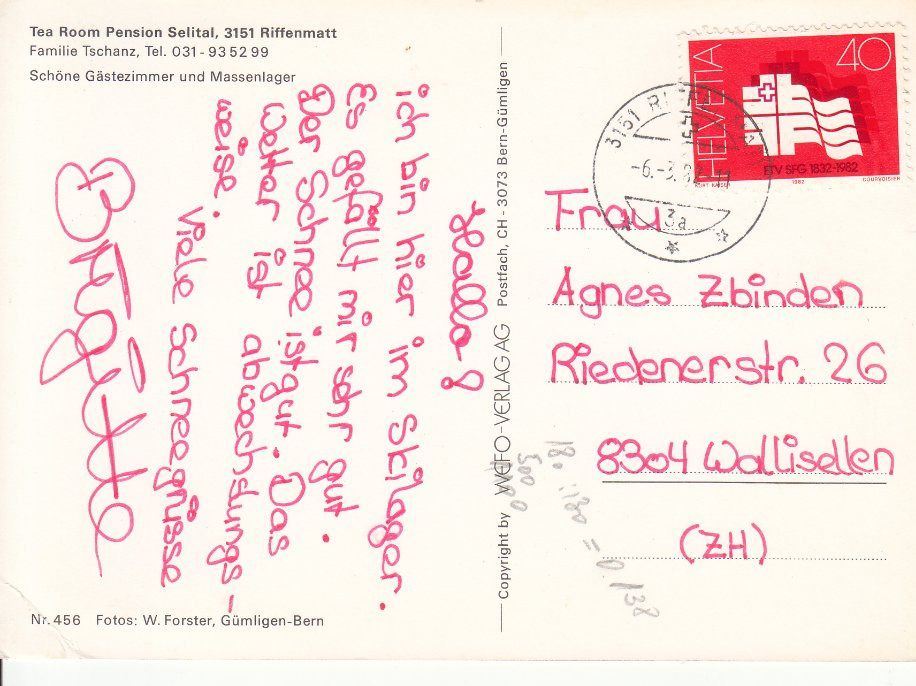 Tea Room Pension Selital, 3151 Riffenmatt
Familie Tschanz, Tel. 031-93 52 99
Schöne Gästezimmer und Massenlager
Hallo!
ich bin hier im Skilager.
Es gefällt mir sehr gut.
Der Schnee ist gut. Das
Wetter ist abwechslungs-
weise. Viele Schneegrüsse
Brigitte
Nr. 456 Fotos: W. Forster, Gümligen-Bern
Copyright by WEFO-VERLAG AG Postfach, CH-3073 Bern-Gümligen
HELVETIA
40
ETV SFG 1832-1982
KURT KAISER 1982 COURVOISIER
3151
-6.-3.82-11
3a
Frau
Agnes Zbinden
Riedenerstr. 26
8304 Wallisellen
(ZH)